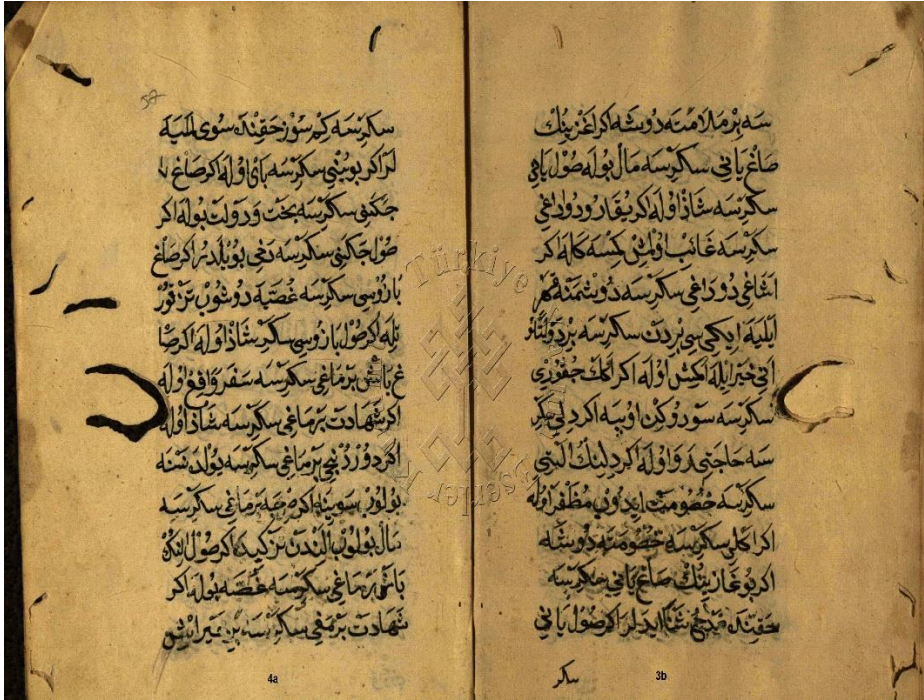 سه بر ملامته دوشه اكر اغزينك
صاغ ياني سكرسه مال بوله صول ياني
سكرسه شاذ اوله اكر يقارو دوداغى
سكرسه غائب اولمش كمسه كله اكر
اشاغى دوداغى سكرسه دوشمنه قهر
ايليه ايكيسى بردن سكرسه بر دولتلو
انى خير ايله اكمش اوله اكر اكك چقورى
سكرسه سودوكن اوپه اكر دلى سكر
سه حاجتى روا اوله اكر دلينك التى
سكرسه خصومت ايدوب مظفر اوله
اكر اكلى سكرسه خصومته دوشه
اكر بوغازينك صاغ يانى سكرسه
حقنده مدح ثنا ايدلر اكر صول يانى
سكر
3b
سكرسه كم سوز حقنده سوى لميه
لر اكر بوينى سكرسه باى اوله اكر صاغ
چكنى سكرسه بخت و دولت بوله اكر
صول چكنى سكرسه دخى بويلدر اكر صاغ
بازوسى سكرسه غصيه دوشوب تز قور
تله اكر صول بازوسى سكرسه شاذ اوله اكر صا
غ باش برماغى سكرسه سفر واقع اوله
اكر شهادت برماغى سكرسه شاذ اوله
اكر دوردنجى برماغى سكرسه يولده نسنه
بولوب سوينه اكر صرچه برماغى سكرسه
مال بولوب الندن تز كيده اكر صول النك
باش برماغى سكرسه غصه بوله اكر
شهادت برمغى سكرسه بر
4a
Türkiye